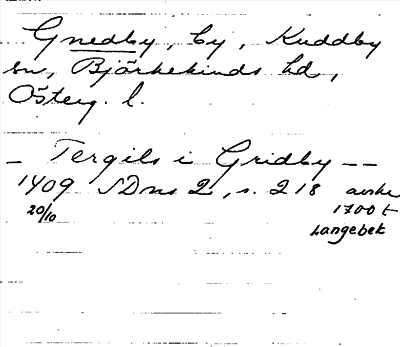 Gnedby, by, Kuddby
sn, Björkekinds hd,
Österg. l.
– Tergils i Gridby – –
1409 SDns 2, s. 218 avskr
20/10 1700 t
Langebek